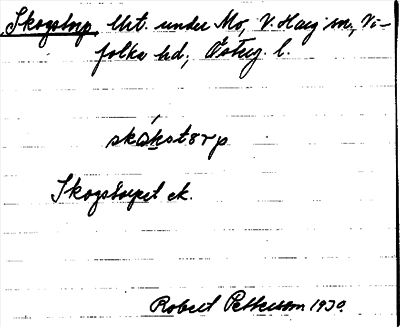 Skogstorp, lht. under Mo, V. Harg sn., Vi-
folka hd, Österg. l.
skókstorp
Skogstorpet ek.
Robert Pettersson 1930.